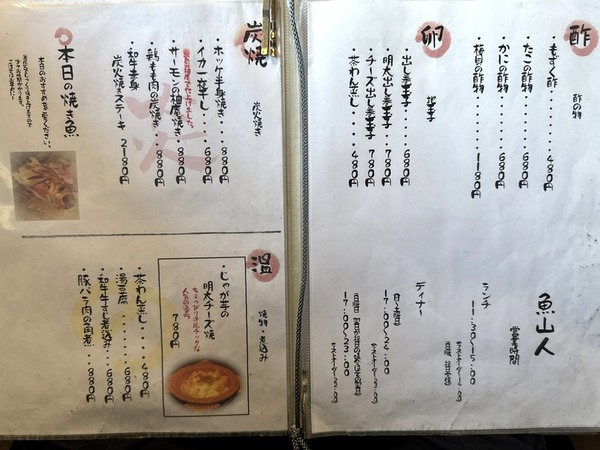 酢
酢の物
・もずく酢・・・・480円
・たこの酢物・・・・680円
・かにの酢物・・・・680円
・梅貝の酢物・・・・1180円
卵
・出し巻玉子・・・・680円
・明太出し巻玉子 780円
・チーズ出し巻玉子 780円
・茶わん蒸し・・・・480円
魚山人
営業時間
ランチ
11:30〜15:00
ディナー
17:00〜24:00
17:00〜23:00
炭焼
炭火焼き
・ホッケ半身焼き・・・880円
・イカ一夜干し・・・680円
・サーモンの柚庵焼き・・880円
・鶏もも肉の炭焼き・・880円
・和牛赤身
炭火焼きステーキ 2180円
本日の焼き魚
本日のおすすめをご覧ください。
温
焼物・煮込み
・じゃが芋の
明太チーズ焼
ちょっぴり洋風チックな
人気の品。
780円
・茶わん蒸し・・・・480円
・湯豆腐・・・・680円
・和牛すじ煮込み・・680円
・豚バラ肉の角煮・・880円